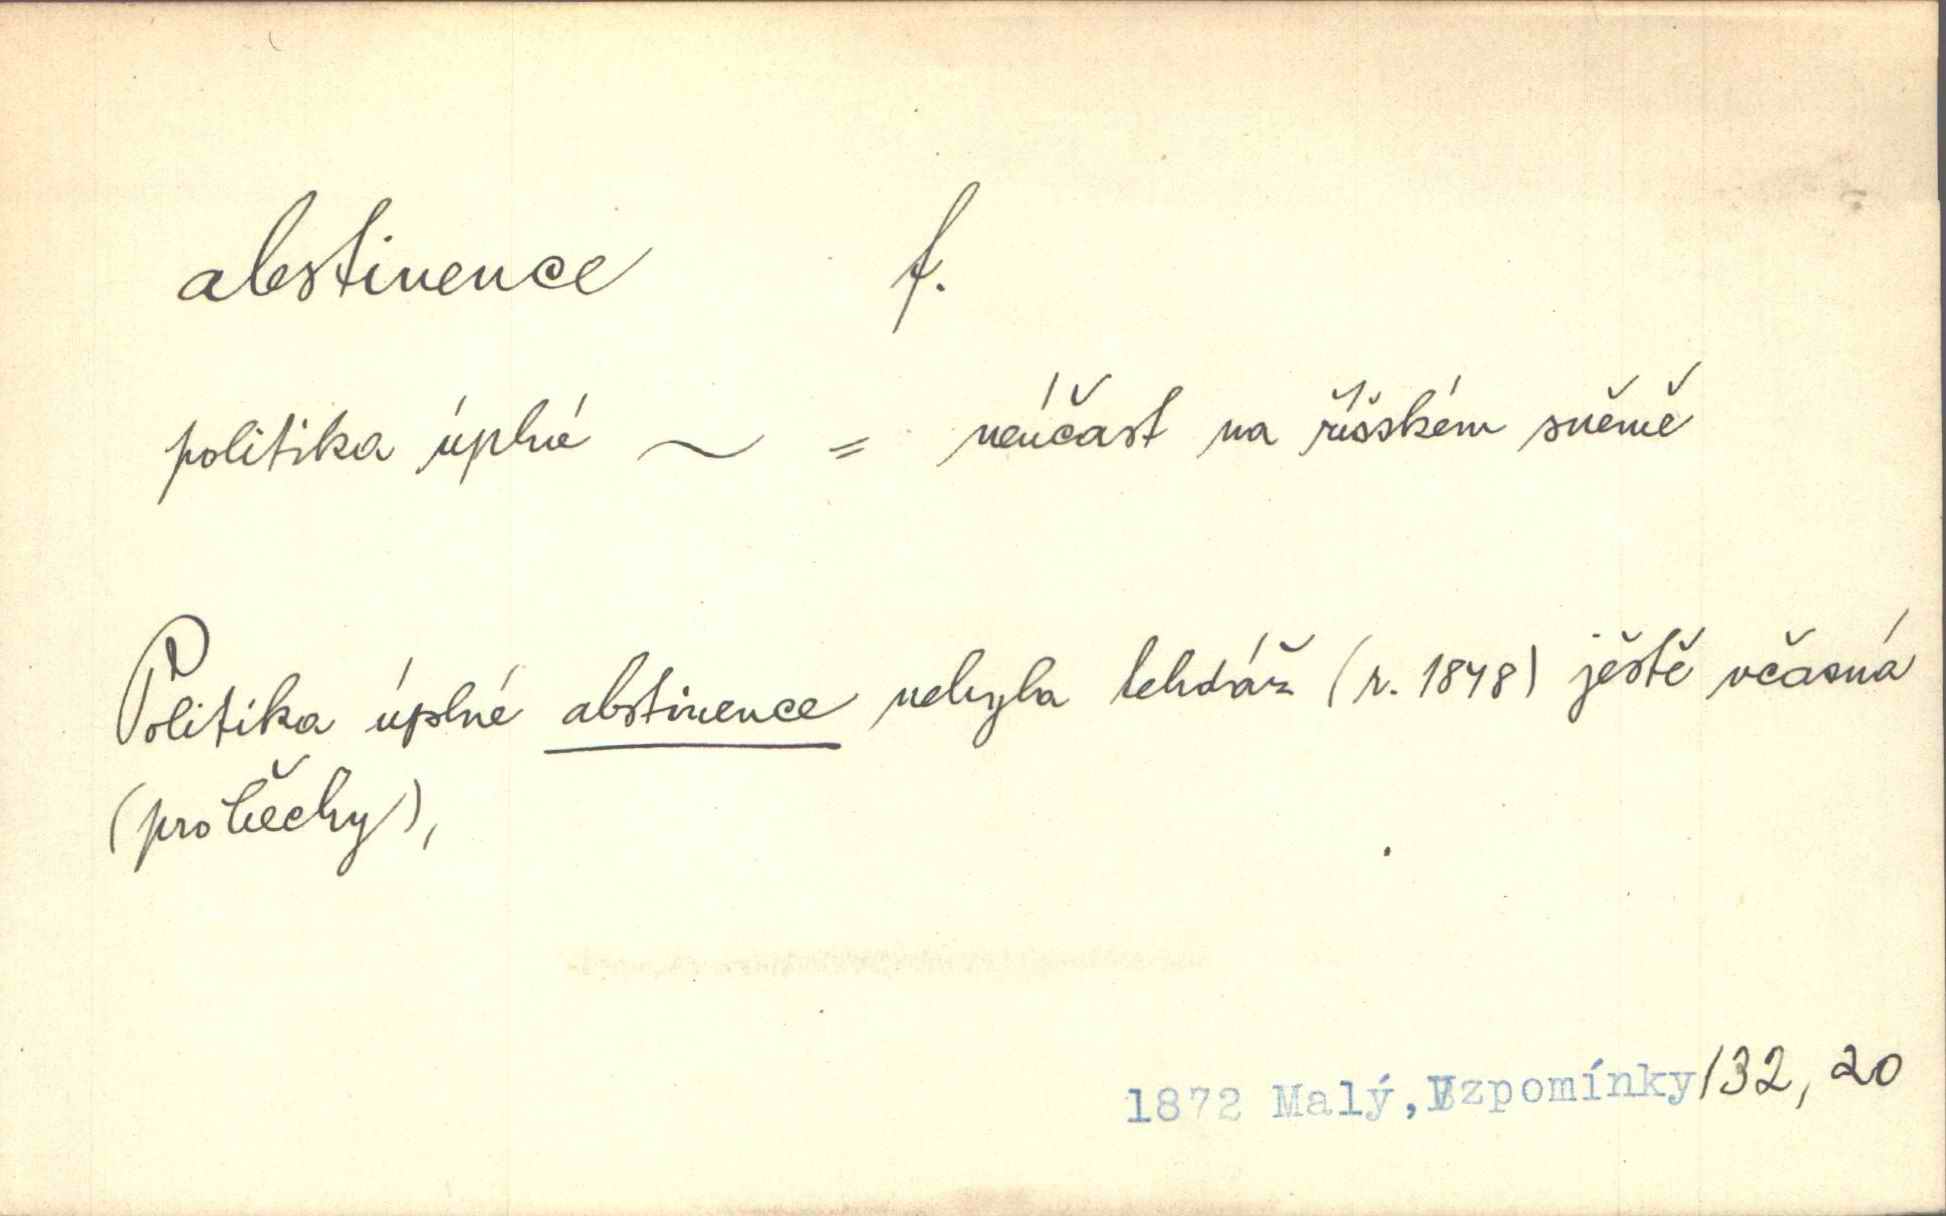 abstinence f.
politika úplné ~ = neúčast na říšském sněmě
Politika úplné abstinence nebyla tehdáž (r. 1848) ještě včasná
(pro Čechy),
1872 Malý, Vzpomínky 132, 20